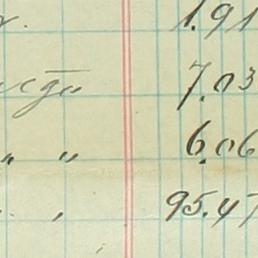 r. 1.91
7.03
„ „ 6.06
. , 95.47